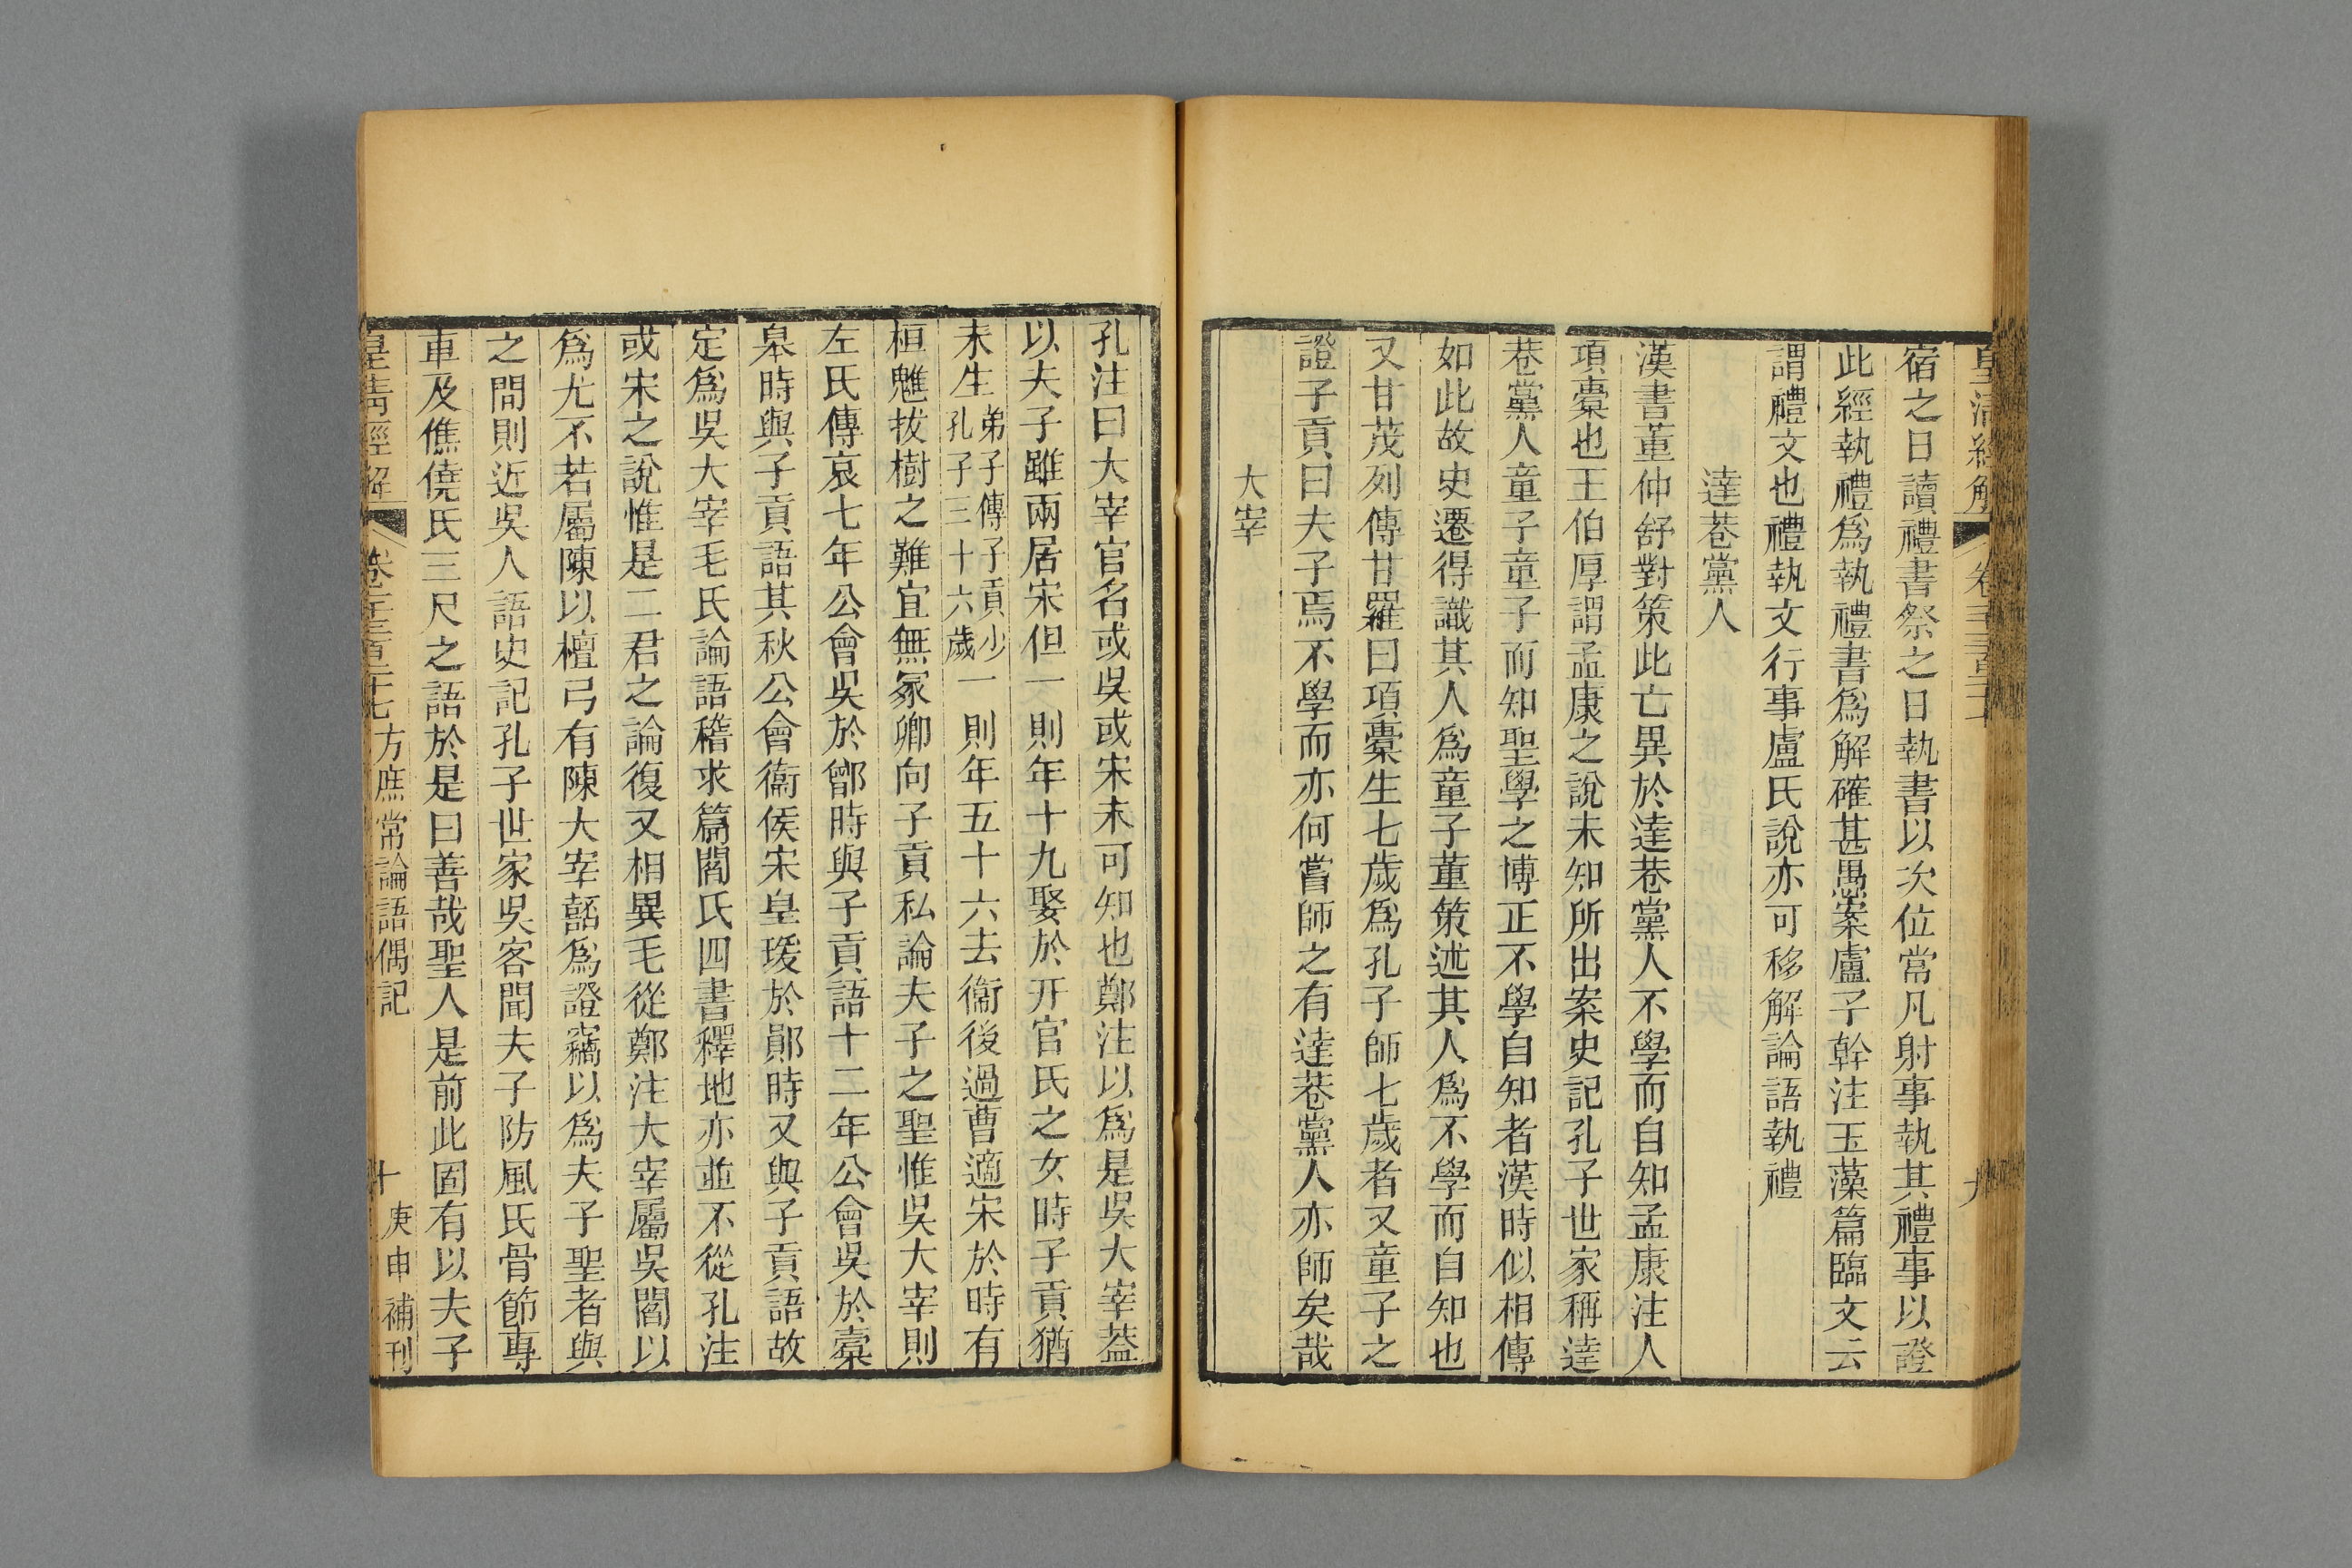 宿之日讀禮書祭之日執書以次位常凡射事執其禮事以證
此經執禮爲執禮書爲解確甚愚案盧子幹注玉藻篇臨文云
謂禮文也禮執文行事盧氏說亦可移解論語執禮
達巷黨人
漢書董仲舒對策此亡異於達巷黨人不學而自知孟康注人
項橐也王伯厚謂孟康之說未知所出案史記孔子世家稱達
巷黨人童子童子而知聖學之博正不學自知者漢時似相傳
如此故史遷得識其人爲童子董策述其人爲不學而自知也
又甘茂列傳甘羅曰項橐生七歲爲孔子師七歲者又童子之
證子貢曰夫子焉不學而亦何嘗師之有達巷黨人亦師矣哉
大宰
孔注曰大宰官名或吳或宋未可知也鄭注以爲是吳大宰葢
以夫子雖兩居宋但一則年十九娶於亓官氏之女時子貢猶
未生弟子傳子貢少孔子三十六歲一則年五十六去衞後過曹適宋於時有
桓魋拔樹之難宜無冢卿向子貢私論夫子之聖惟吳大宰則
左氏傳哀七年公會吳於鄫時與子貢語十二年公會吳於橐
皋時與子貢語其秋公會衞侯宋皇瑗於鄖時又與子貢語故
定爲吳大宰毛氏論語稽求篇閻氏四書釋地亦並不從孔注
或宋之說惟是二君之論復又相異毛從鄭注大宰屬吳閻以
爲尤不若屬陳以檀弓有陳大宰嚭爲證竊以爲夫子聖者與
之問則近吳人語史記孔子世家吳客聞夫子防風氏骨節專
車及僬僥氏三尺之語於是曰善哉聖人是前此固有以夫子
皇清經解 卷千三百二十七 方庶常論語偶記 十 庚申補刊